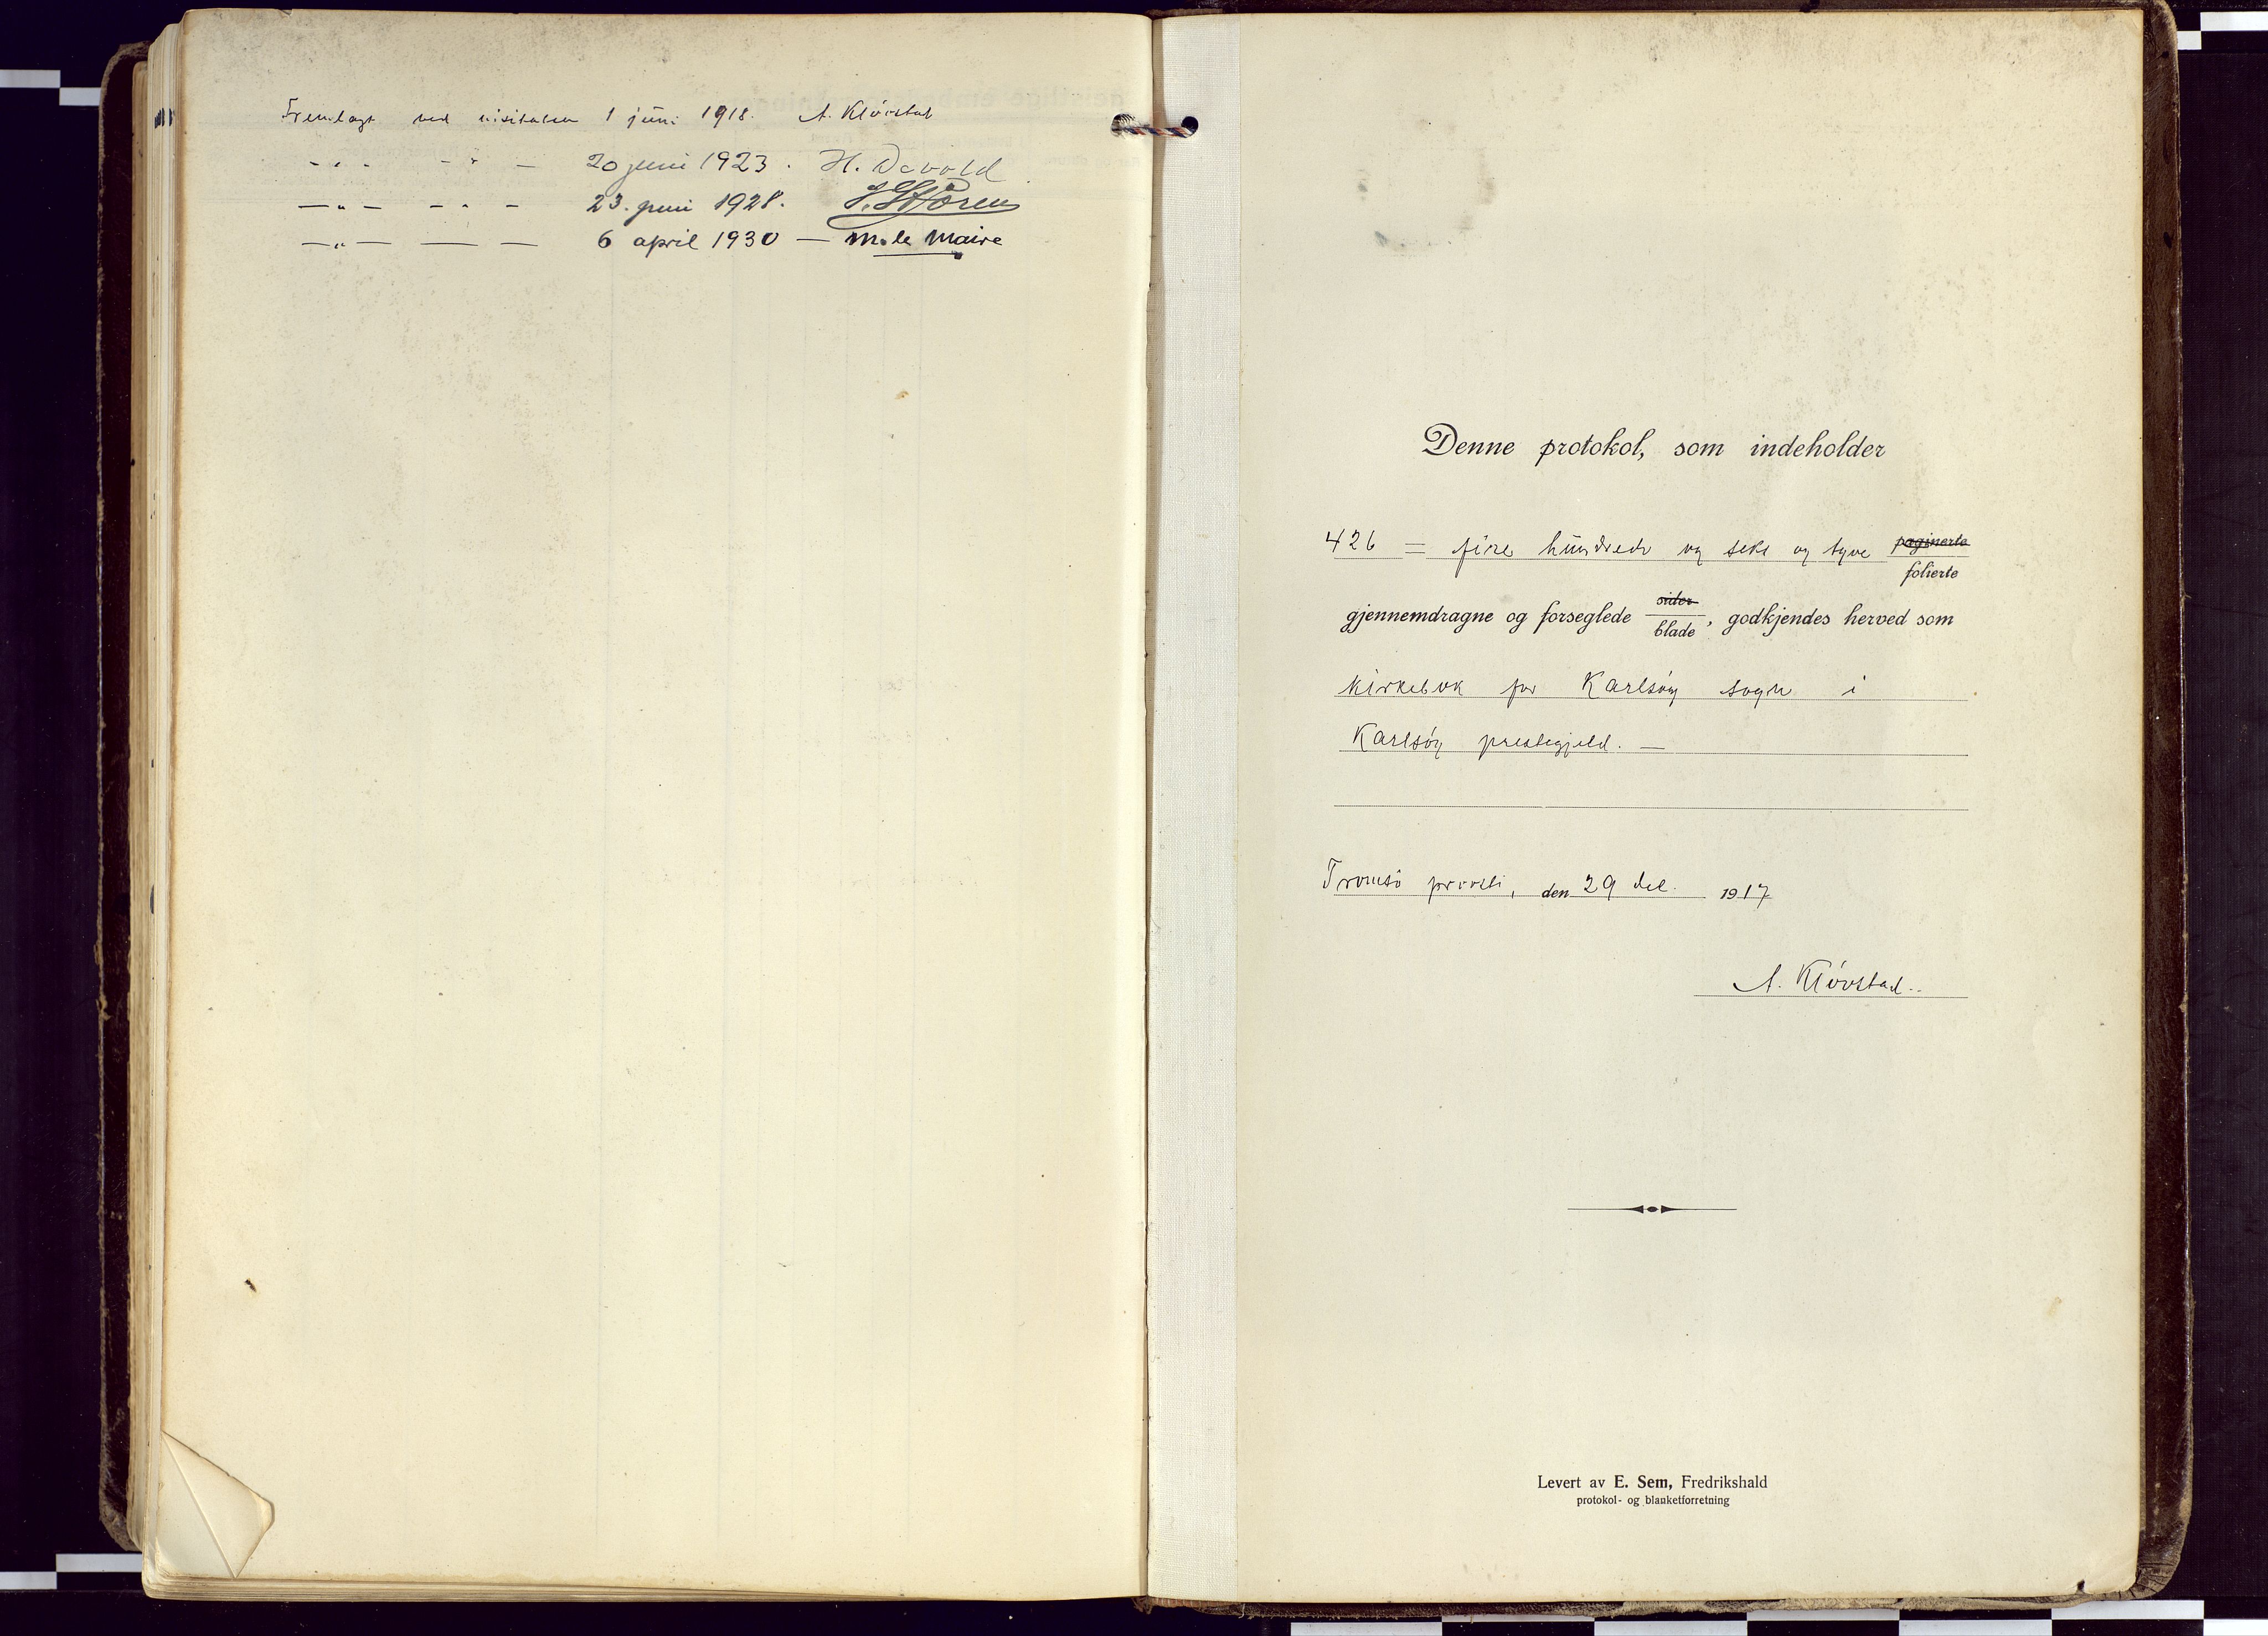 Fremlagt ved visitatsen 1 juni 1918. A. Klövstad
- " - - " - 20 juni 1923. H. Devold
- " - - " - 23. juni 1928. Støren
- " - — - 6 april 1930 — M. le Maire
Denne protokol, som indeholder
426 = fire hundrede og seks og tyve paginerte
folierte
gjennemdragne og forseglede sider
blade, godkjendes herved som
kirkebok for Karlsöy sogn i
Karlsöy prestegjeld. —
Tromsö provsti, den 29 des. 1917
A. Klövstad.
Levert av E. Sem, Fredrikshald
protokol- og blanketforretning